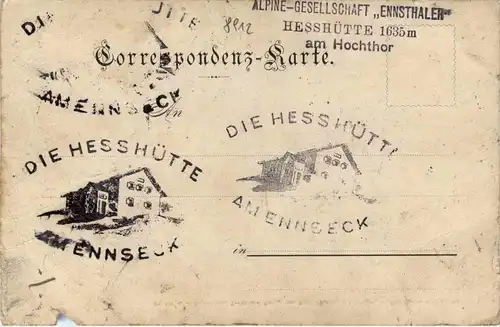 ALPINE-GESELLSCHAFT „ENNSTHALER"
HESSHÜTTE 1635 m
am Hochthor
8912
DIE HÜTTE
Correspondenz-Karte.
AM ENNSECK
An
DIE HESSHÜTTE
AM ENNSECK
DIE HESSHÜTTE
AM ENNSECK
in